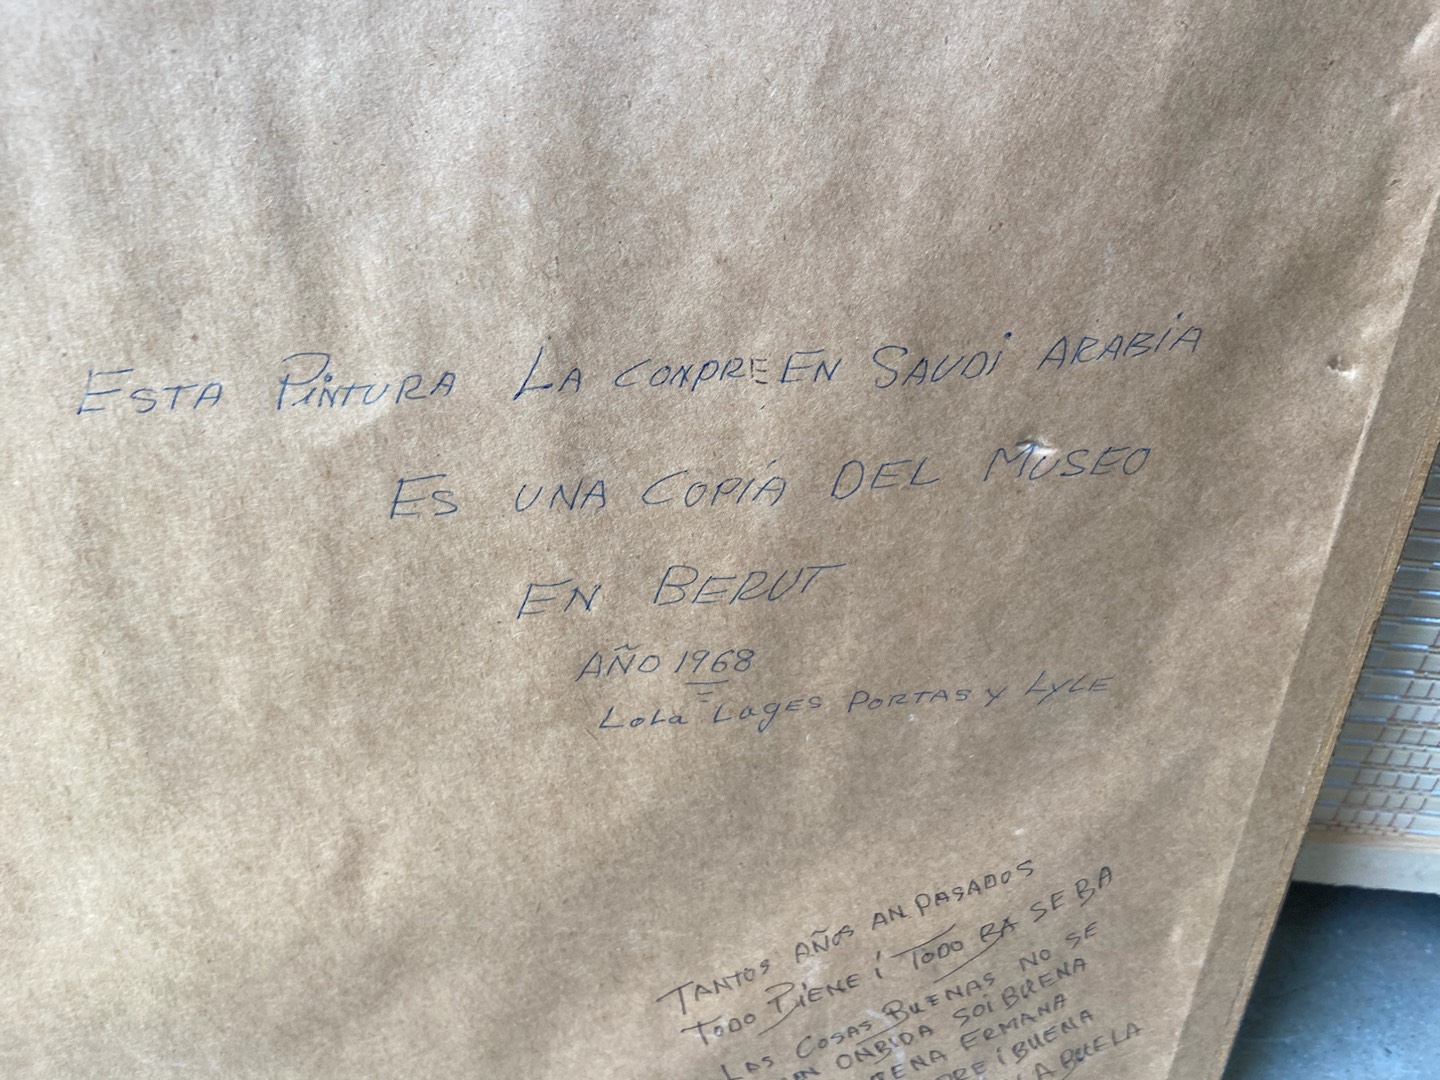 ESTA PINTURA LA CONPRE EN SAUDI ARABIA
ES UNA COPIA DEL MUSEO
EN BERUT
AÑO 1968
LOLA LAGES PORTAS Y LYLE
TANTOS AÑOS AN PASADOS
TODO BIENE I TODO BA SE BA
LAS COSAS BUENAS NO SE
ONBIDA SOI BUENA
ERMANA
I BUENA
ABUELA